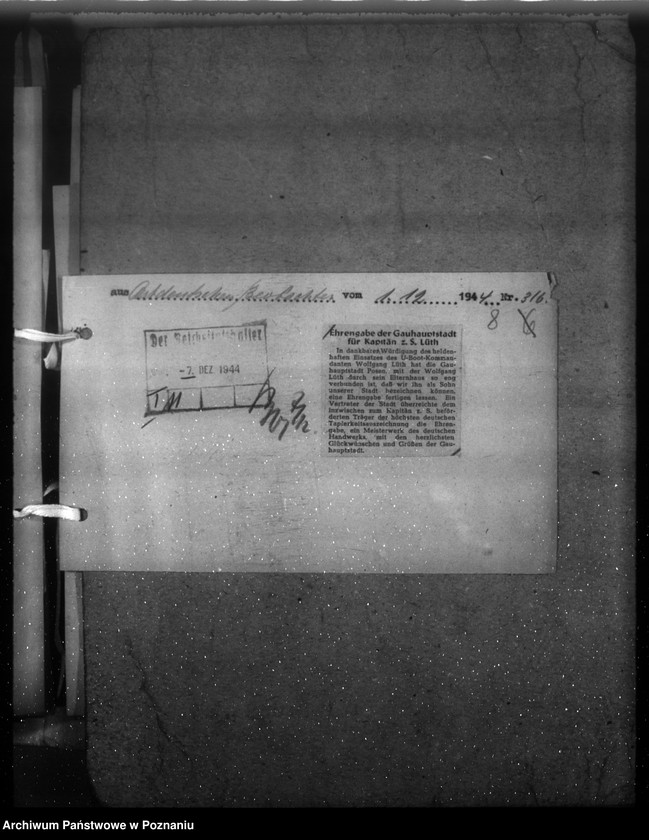 aus Ostdeutscher Beobachter vom 1.12. 1944. Nr. 316.
8 6
Der Reichsstatthalter
-7. DEZ 1944
Ehrengabe der Gauhauptstadt
für Kapitän z. S. Lüth
In dankbarer Würdigung des helden-
haften Einsatzes des U-Boot-Komman-
danten Wolfgang Lüth hat die Gau-
hauptstadt Posen, mit der Wolfgang
Lüth durch sein Elternhaus so eng
verbunden ist, daß wir ihn als Sohn
unserer Stadt bezeichnen können,
eine Ehrengabe fertigen lassen. Ein
Vertreter der Stadt überreichte dem
inzwischen zum Kapitän z. S. beför-
derten Träger der höchsten deutschen
Tapferkeitsauszeichnung die Ehren-
gabe, ein Meisterwerk des deutschen
Handwerks, mit den herzlichsten
Glückwünschen und Grüßen der Gau-
hauptstadt.
Archiwum Państwowe w Poznaniu